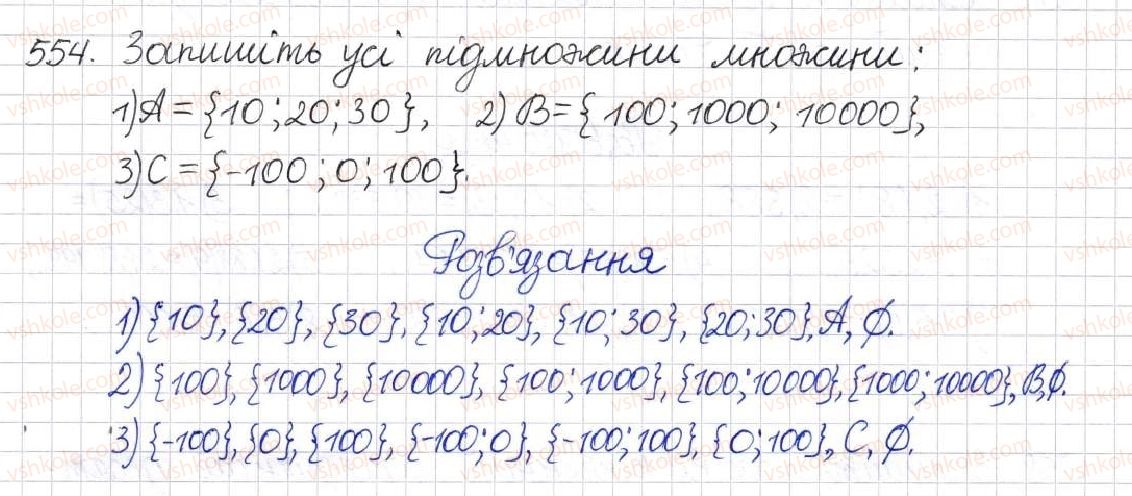 554. Запишіть усі підмножини множини:
1) A = {10; 20; 30}, 2) B = { 100; 1000; 10000},
3) C = {-100; 0; 100}.
Розв'язання
1) {10}, {20}, {30}, {10; 20}, {10; 30}, {20; 30}, A, ∅.
2) {100}, {1000}, {10000}, {100; 1000}, {100; 10000}, {1000; 10000}, B, ∅.
3) {-100}, {0}, {100}, {-100; 0}, {-100; 100}, {0; 100}, C, ∅.